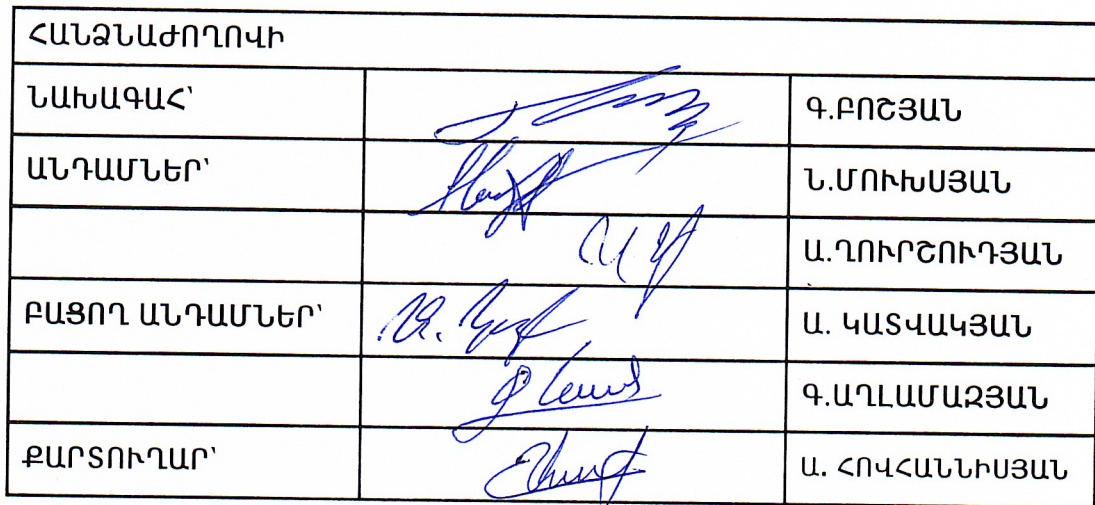 ՀԱՆՁՆԱԺՈՂՈՎԻ
ՆԱԽԱԳԱՀ՝ Գ.ԲՈՇՅԱՆ
ԱՆԴԱՄՆԵՐ՝ Ն.ՄՈՒԽՍՅԱՆ
Ա.ՂՈՒՐՇՈՒԴՅԱՆ
ԲԱՑՈՂ ԱՆԴԱՄՆԵՐ՝ Ա. ԿԱՏՎԱԿՅԱՆ
Գ.ԱՂԼԱՄԱԶՅԱՆ
ՔԱՐՏՈՒՂԱՐ՝ Ա. ՀՈՎՀԱՆՆԻՍՅԱՆ